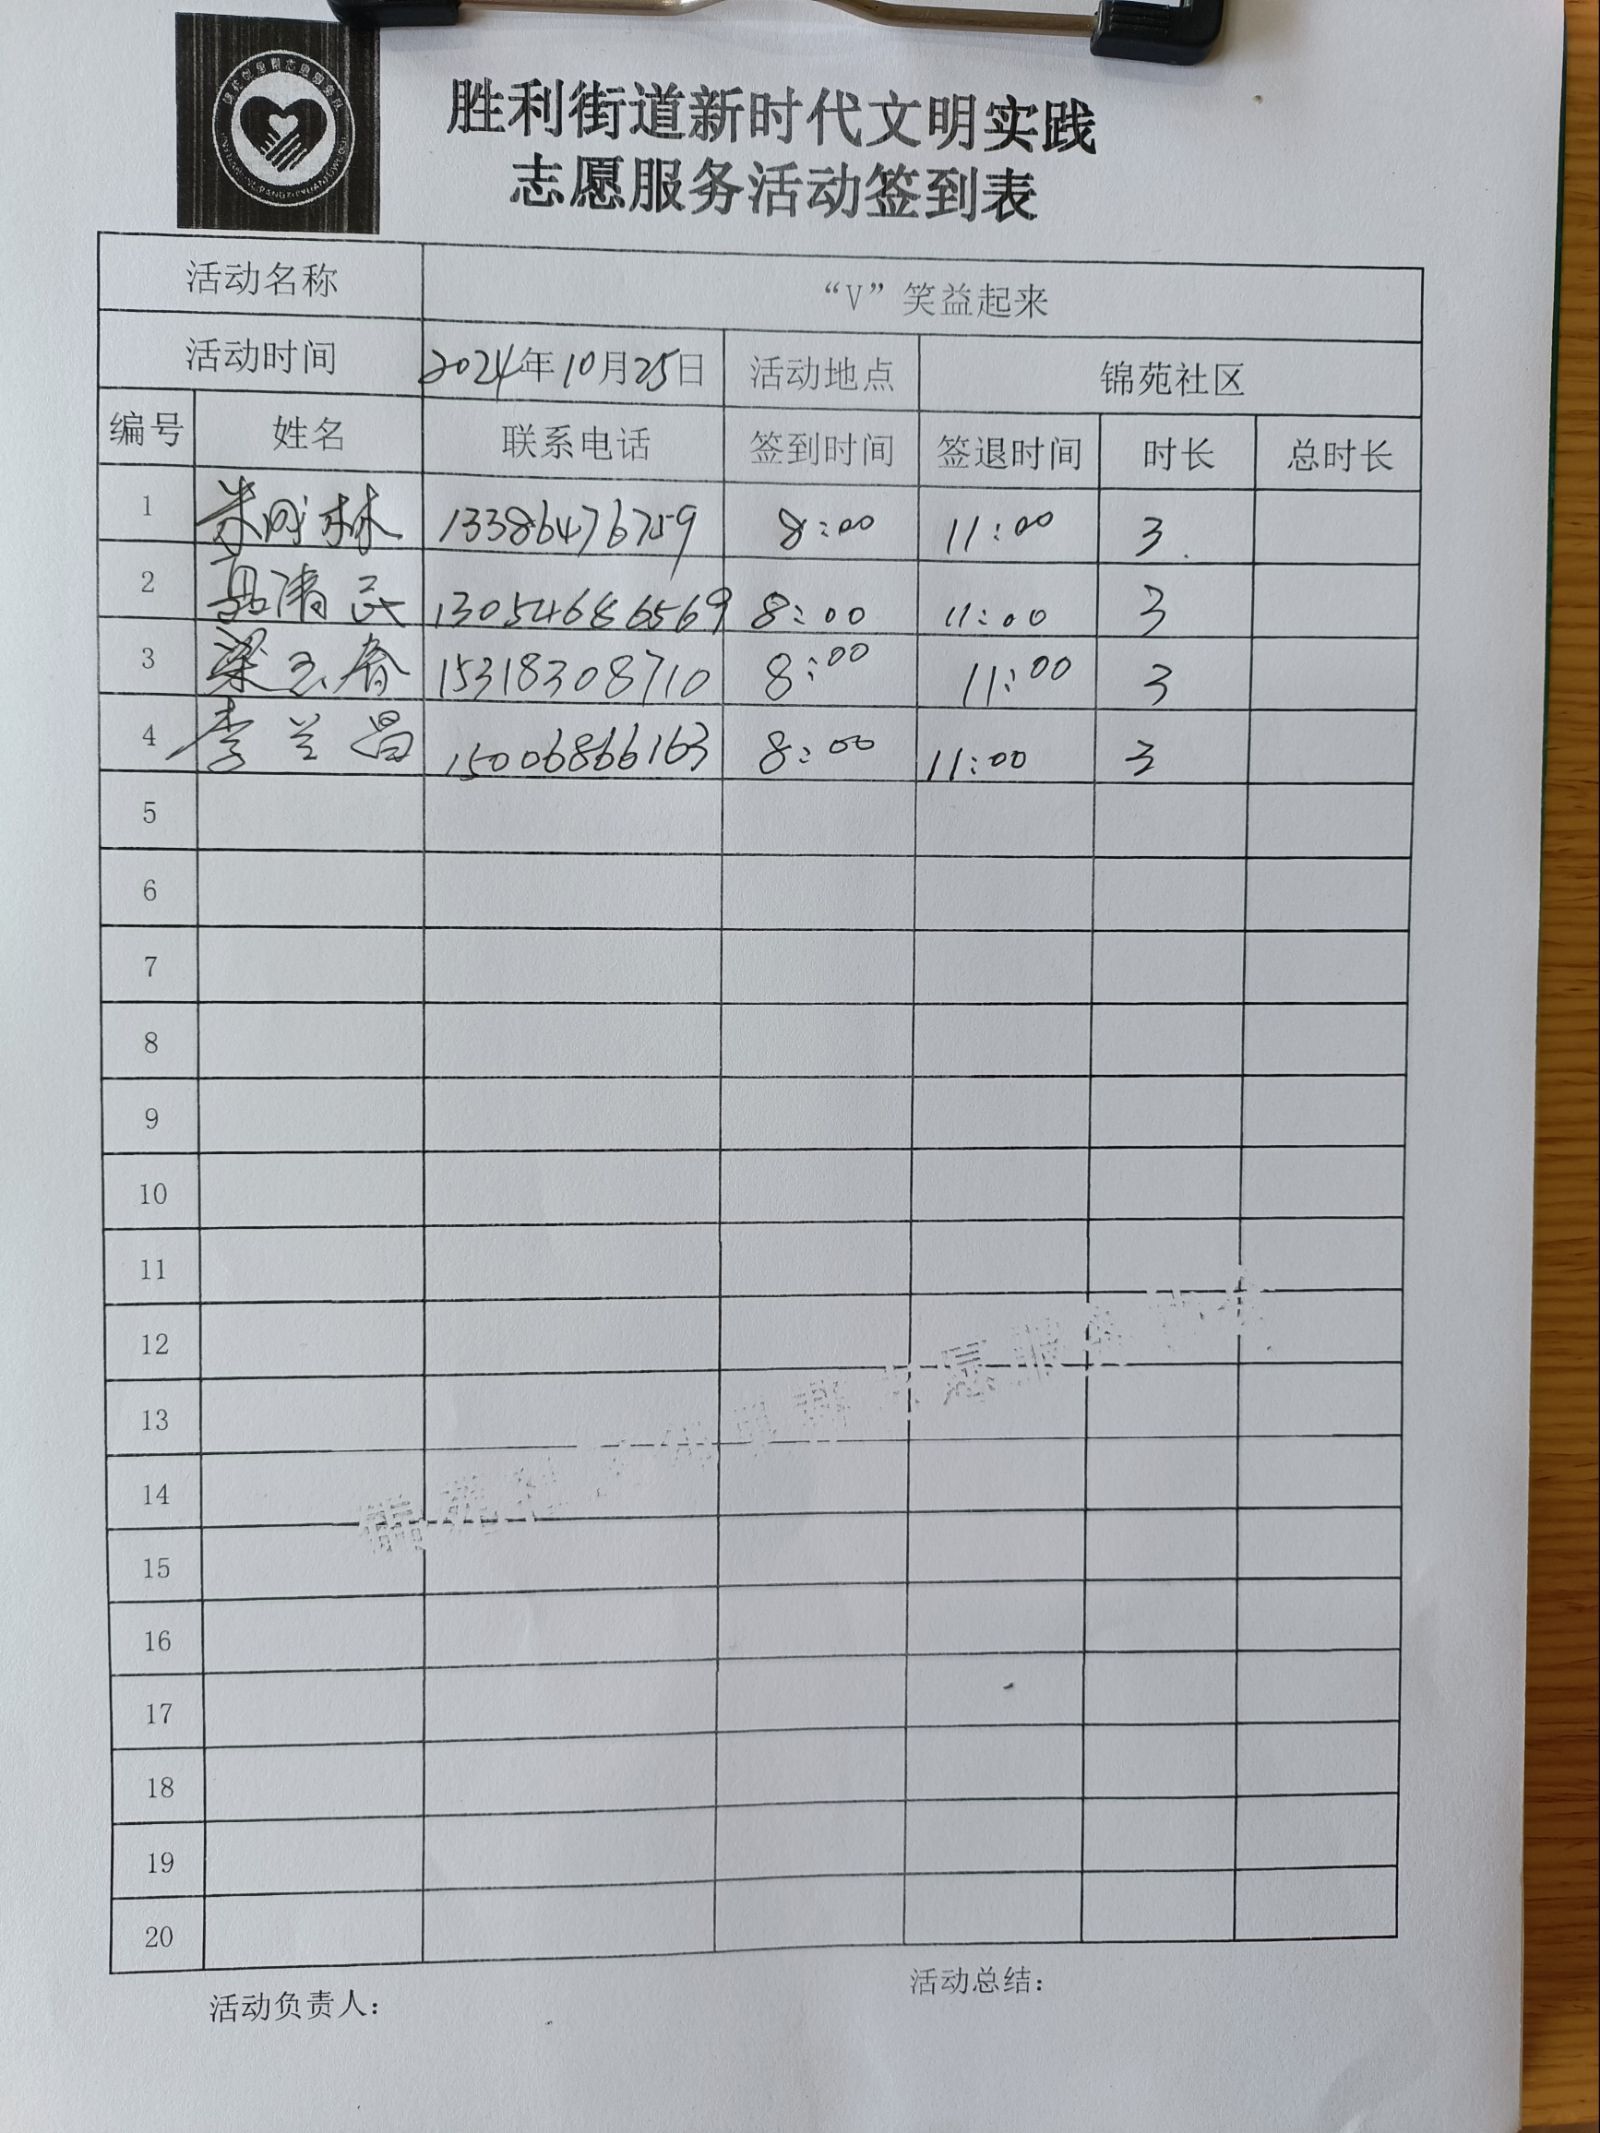 胜利街道新时代文明实践
志愿服务活动签到表
活动名称 “V”笑益起来
活动时间 2024年10月25日 活动地点 锦苑社区
编号 姓名 联系电话 签到时间 签退时间 时长 总时长
1 13386476759 8:00 11:00 3
2 13054686569 8:00 11:00 3
3 梁玉春 15318308710 8:00 11:00 3
4 李兰昌 15006866163 8:00 11:00 3
5
6
7
8
9
10
11
12
13
14
15
16
17
18
19
20
活动负责人：
活动总结：